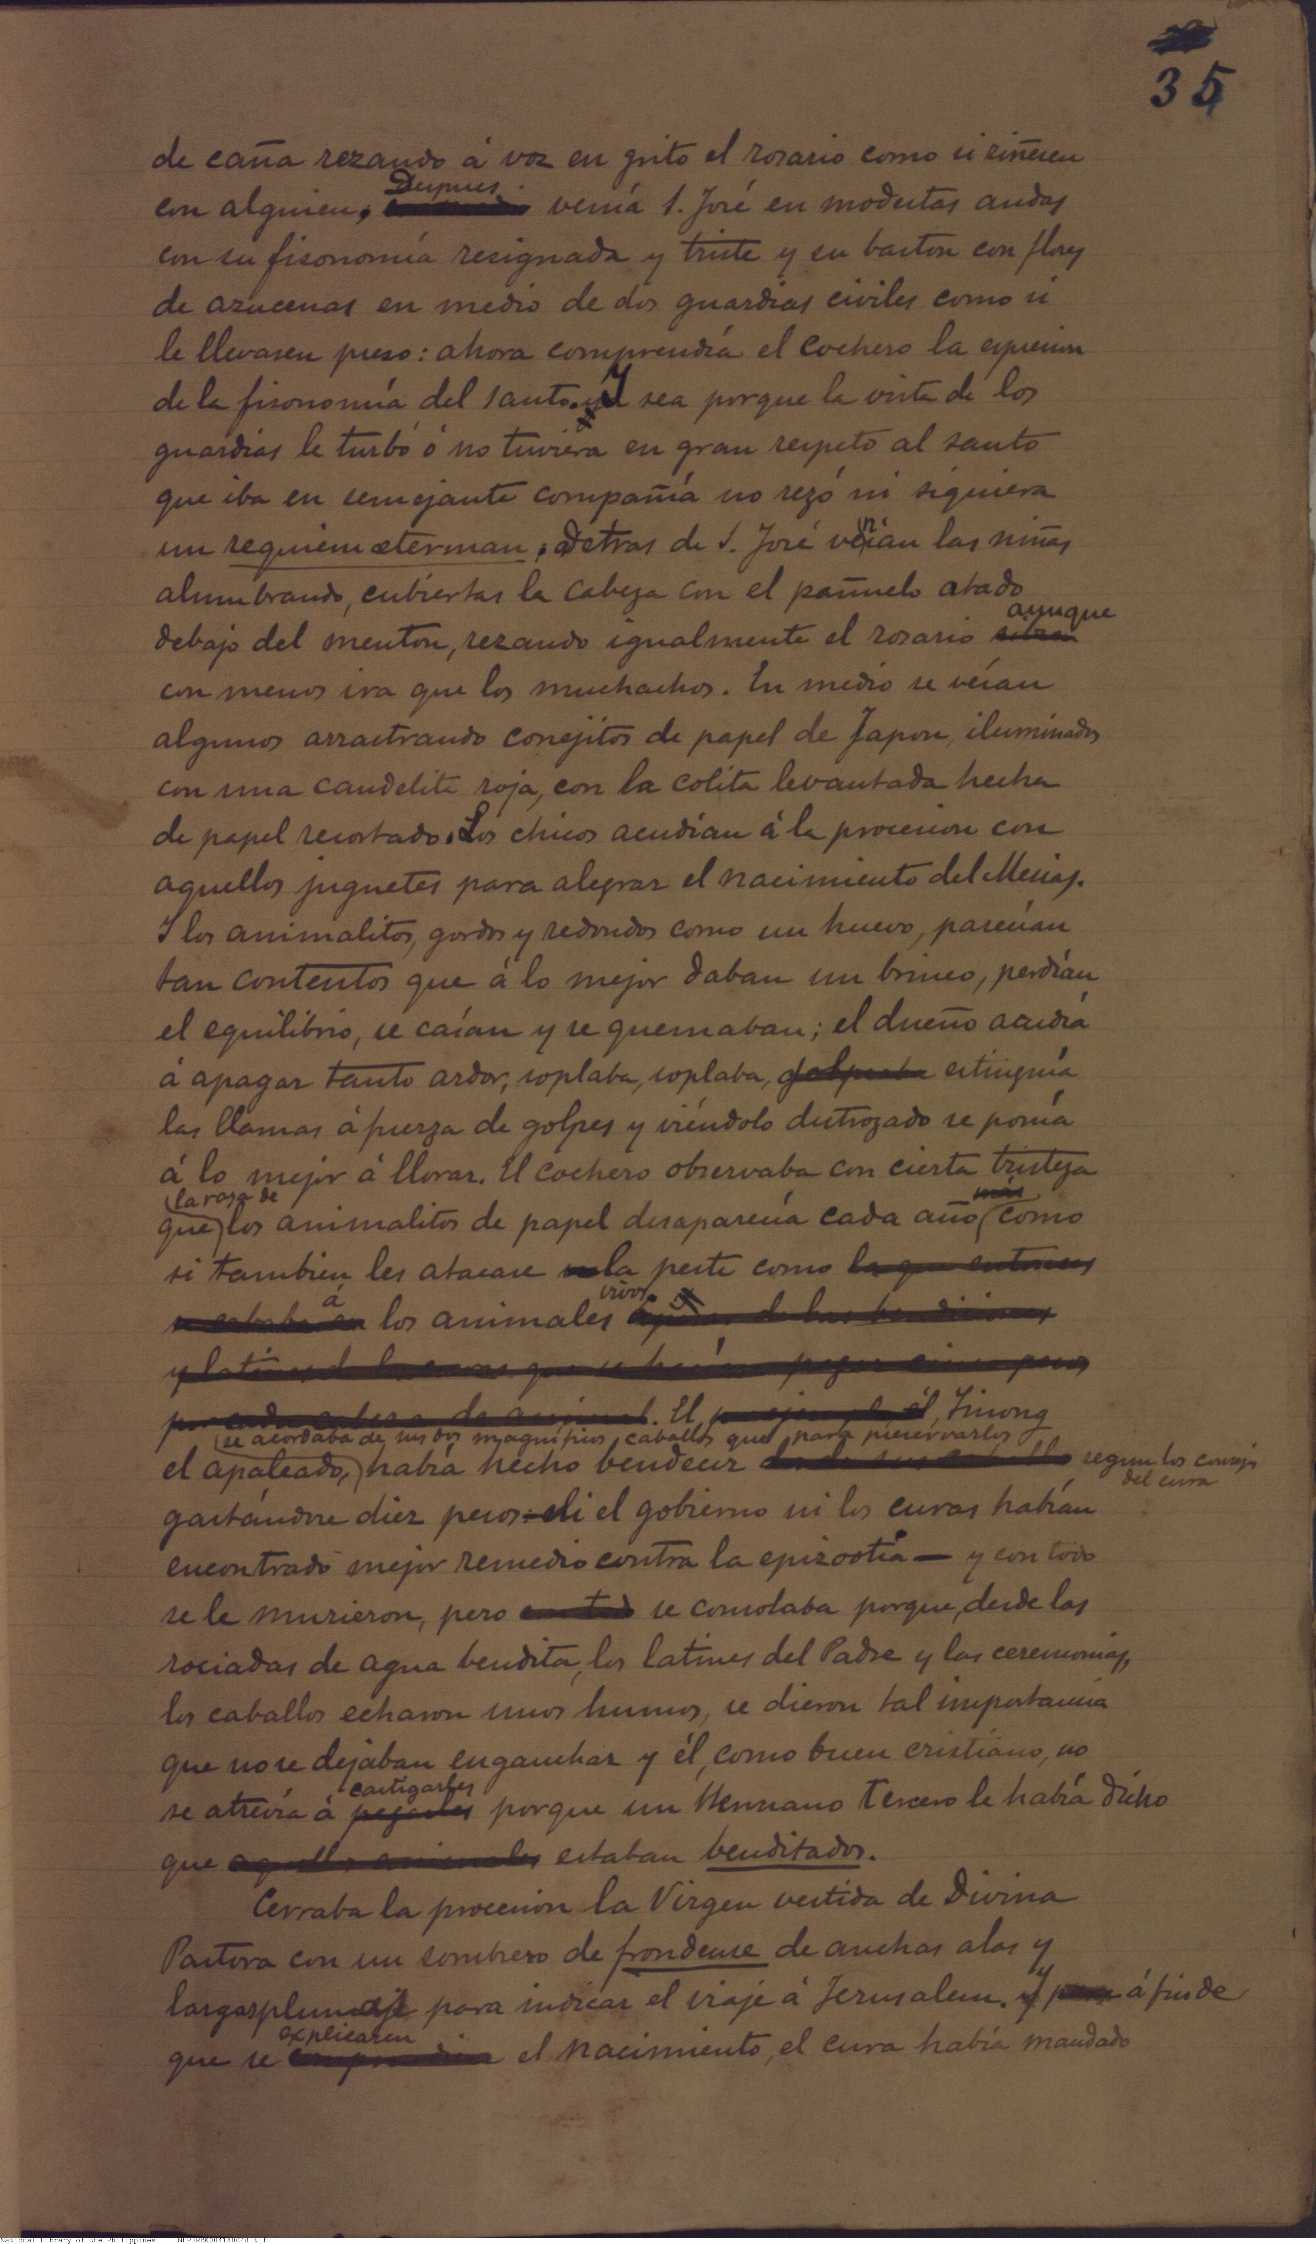 35
de caña rezando á voz en grito el rosario como si riñesen
Despues
con alguien. venía S. José en modestas andas
con su fisonomía resignada y triste y su baston con flores
de azucenas en medio de dos guardias civiles como si
le llevasen preso: ahora comprendía el cochero la espresion
de la fisonomía del santo. Y sea porque la vista de los
guardias le turbó ó no tuviera en gran respeto al santo
que iba en semejante compañía no rezó ni siquiera
un requiem æternam. Detras de S. José venían las niñas
alumbrando, cubiertas la cabeza con el pañuelo atado
aunque
debajo del menton, rezando igualmente el rosario
con menos ira que los muchachos. En medio se veían
algunos arrastrando conejitos de papel de Japon, iluminados
con una candelita roja, con la colita levantada hecha
de papel recortado. Los chicos acudían á la procesion con
aquellos juguetes para alegrar el nacimiento del Mesias.
Y los animalitos, gordos y redondos como un huevo, parecían
tan contentos que á lo mejor daban un brinco, perdían
el equilibrio, se caían y se quemaban; el dueño acudía
á apagar tanto ardor, soplaba, soplaba, golpeaba estinguía
las llamas á fuerza de golpes y viéndolo destrozado se ponía
á lo mejor á llorar. El cochero observaba con cierta tristeza
la raza de más
que los animalitos de papel desaparecía cada año como
si tambien les atacase la peste como la que entonces
á vivos.
se estaba en los animales apesar de las bendiciones
y latines de los curas que se hacían pagar cinco pesos
por cada cabeza de animal. El por ejemplo él, Sinong
se acordaba de sus dos magníficos caballos que para preservarlos
el apaleado, había hecho bendecir segun los consejos
del cura
gastándose diez pesos: ni el gobierno ni los curas habían
encontrado mejor remedio contra la epizootia — y con todo
se le murieron, pero se consolaba porque, desde las
rociadas de agua bendita, los latines del Padre y las ceremonias,
los caballos echaron unos humos, se dieron tal importancia
que no se dejaban enganchar y él, como buen cristiano, no
castigarles
se atrevía á pegarles porque un Hermano Tercero le había dicho
que aquellos animales estaban benditados.
Cerraba la procesion la Virgen vestida de Divina
Pastora con un sombrero de frondeuse de anchas alas y
largas plumas para indicar el viaje á Jerusalem. Y para á fin de
explicasen
que se el nacimiento, el cura había mandado